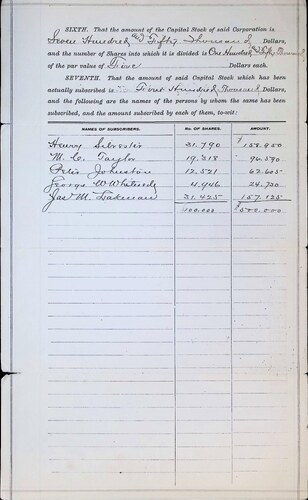 SIXTH. That the amount of the Capital Stock of said Corporation is
Seven Hundred and Fifty Thousand Dollars,
and the number of Shares into which it is divided is One Hundred and Fifty Thousand
of the par value of Five Dollars each.
SEVENTH. That the amount of said Capital Stock which has been
actually subscribed is Five Hundred Thousand Dollars,
and the following are the names of the persons by whom the same has been
subscribed, and the amount subscribed by each of them, to-wit:
NAMES OF SUBSCRIBERS. NO. OF SHARES. AMOUNT.
Henry Silvester 31.790 $158.950
M. C. Taylor 19.318 96.590
Peter Johnston 12.521 62.605
George W Whiteside 4.946 24.730
Jas M. Lakeman 31.425 157.125
100.000 $500.000